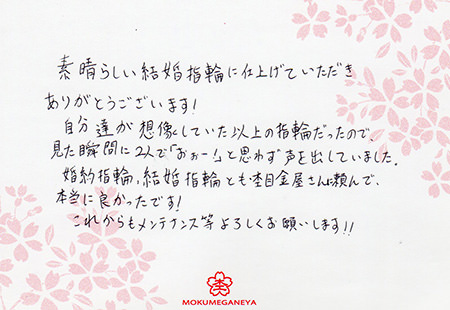 素晴らしい結婚指輪に仕上げていただき
ありがとうございます!
自分達が想像していた以上の指輪だったので、
見た瞬間に2人で「おぉー!」と思わず声を出していました。
婚約指輪、結婚指輪とも杢目金屋さんに頼んで、
本当に良かったです!
これからもメンテナンス等よろしくお願いします!!
杢
MOKUMEGANEYA